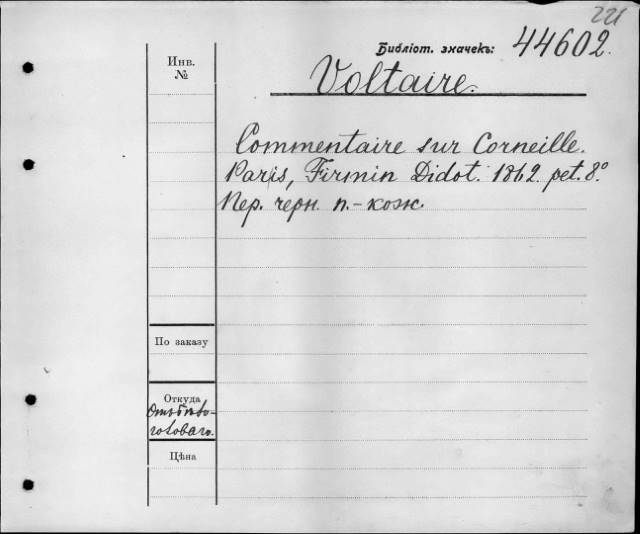 221
Библіот. значекъ: 44602.
Инв.
№
Voltaire.
Commentaire sur Corneille.
Paris, Firmin Didot. 1862. pet. 8°
Пер. черн. п.-кож.
По заказу
Откуда
Цѣна